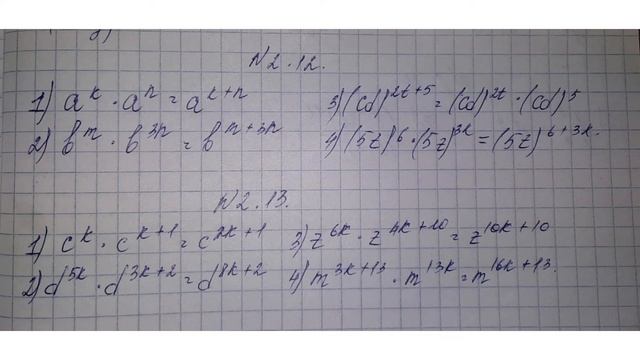 N2.12.
1) a^k · a^n = a^{k+n}
2) b^m · b^{3n} = b^{m+3n}
3) (cd)^{2t+5} = (cd)^{2t} · (cd)^5
4) (5z)^6 · (5z)^{3k} = (5z)^{6+3k}.
N2.13.
1) c^k · c^{k+1} = c^{2k+1}
2) d^{5k} · d^{3k+2} = d^{8k+2}
3) z^{6k} · z^{4k+10} = z^{10k+10}
4) m^{3k+13} · m^{13k} = m^{16k+13}.